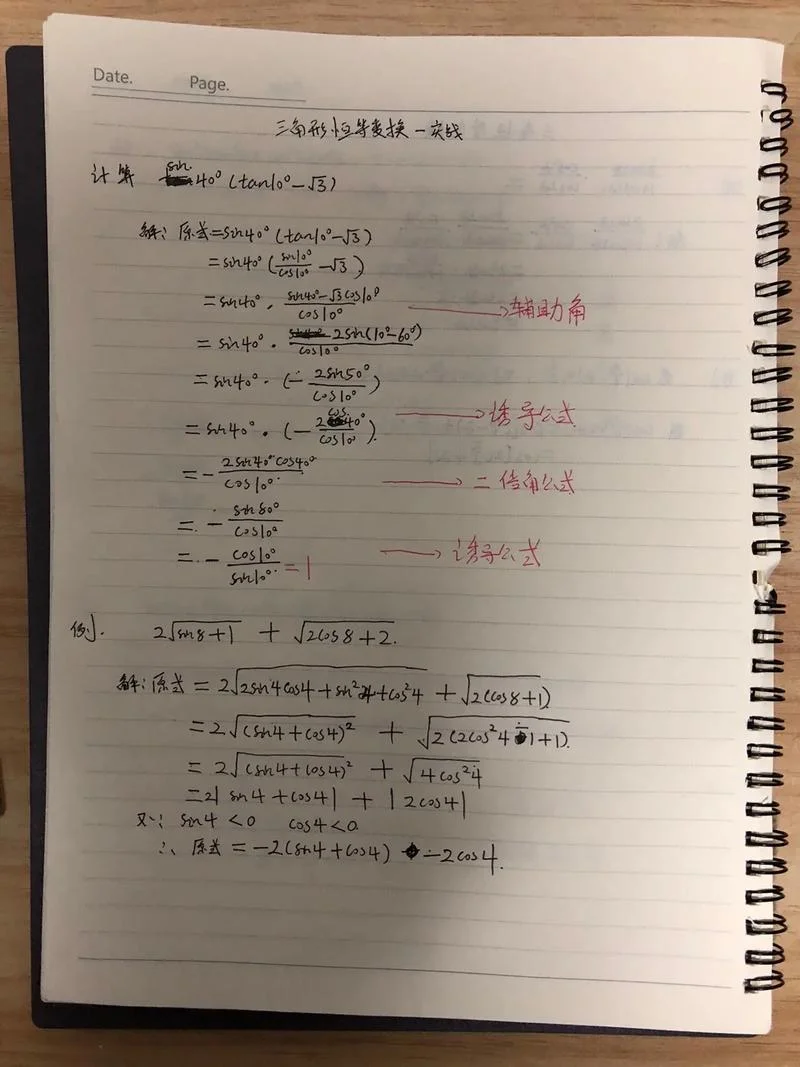 Date. Page.
三角形恒等变换-实战
计算 sin40°(tan10°-√3)
解:原式=sin40°(tan10°-√3)
=sin40°(sin10°/cos10°-√3)
=sin40°·(sin40°-√3cos10°)/cos10° → 辅助角
=sin40°·2sin(10°-60°)/cos10°
=sin40°·(-2sin50°/cos10°)
=sin40°·(-2cos40°/cos10°) → 诱导公式
=-2sin40°cos40°/cos10° → 二倍角公式
=-sin80°/cos10°
=-cos10°/sin10°=1 → 诱导公式
例. 2√(sin8+1) + √(2cos8+2).
解:原式=2√(2sin4cos4+sin²4+cos²4) + √(2(cos8+1))
=2√((sin4+cos4)²) + √(2(2cos²4-1+1)).
=2√((sin4+cos4)²) + √(4cos²4)
=2|sin4+cos4| + |2cos4|
又∵ sin4<0 cos4<0
∴ 原式=-2(sin4+cos4) -2cos4.